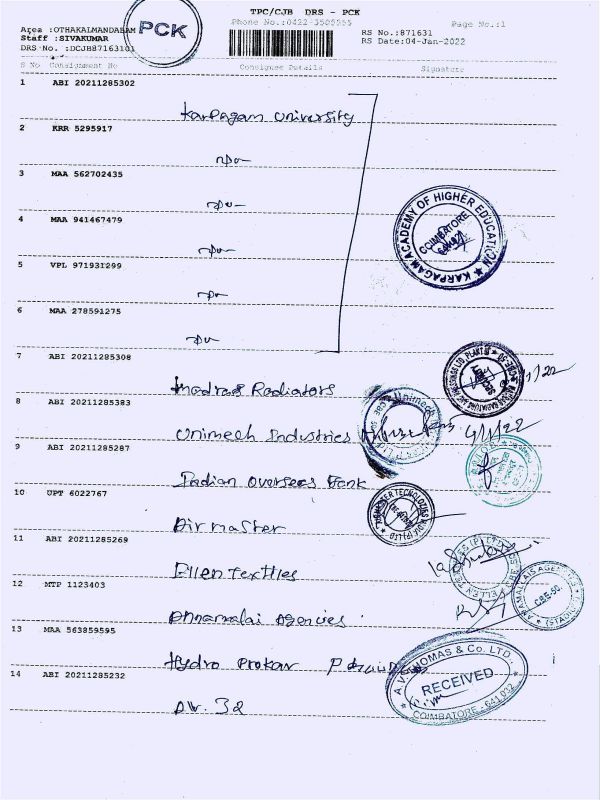 TPC/CJB DRS - PCK
Phone No.:0422-3505555
Page No.:1
Area :OTHAKALMANDABAM
Staff :SIVAKUMAR
DRS No. :DCJB87163101
PCK
RS No.:871631
RS Date:04-Jan-2022
S No Consignment No Consignee Details Signature
1 ABI 20211285302
Karpagam University
2 KRR 5295917
3 MAA 562702435
4 MAA 941467479
5 VPL 971931299
6 MAA 278591275
KARPAGAM ACADEMY OF HIGHER EDUCATION
COIMBATORE
7 ABI 20211285308
Madras Radiators
8 ABI 20211285383
Unimech Industries
4/1/22
9 ABI 20211285287
Indian Overseas Bank
10 UPT 6022767
Airmaster
11 ABI 20211285269
Ellen Textiles
12 MTP 1123403
Annamalai Agencies
13 MAA 563859595
Hydro Prokav
14 ABI 20211285232
A.V. THOMAS & Co. LTD.,
RECEIVED
COIMBATORE - 641 032